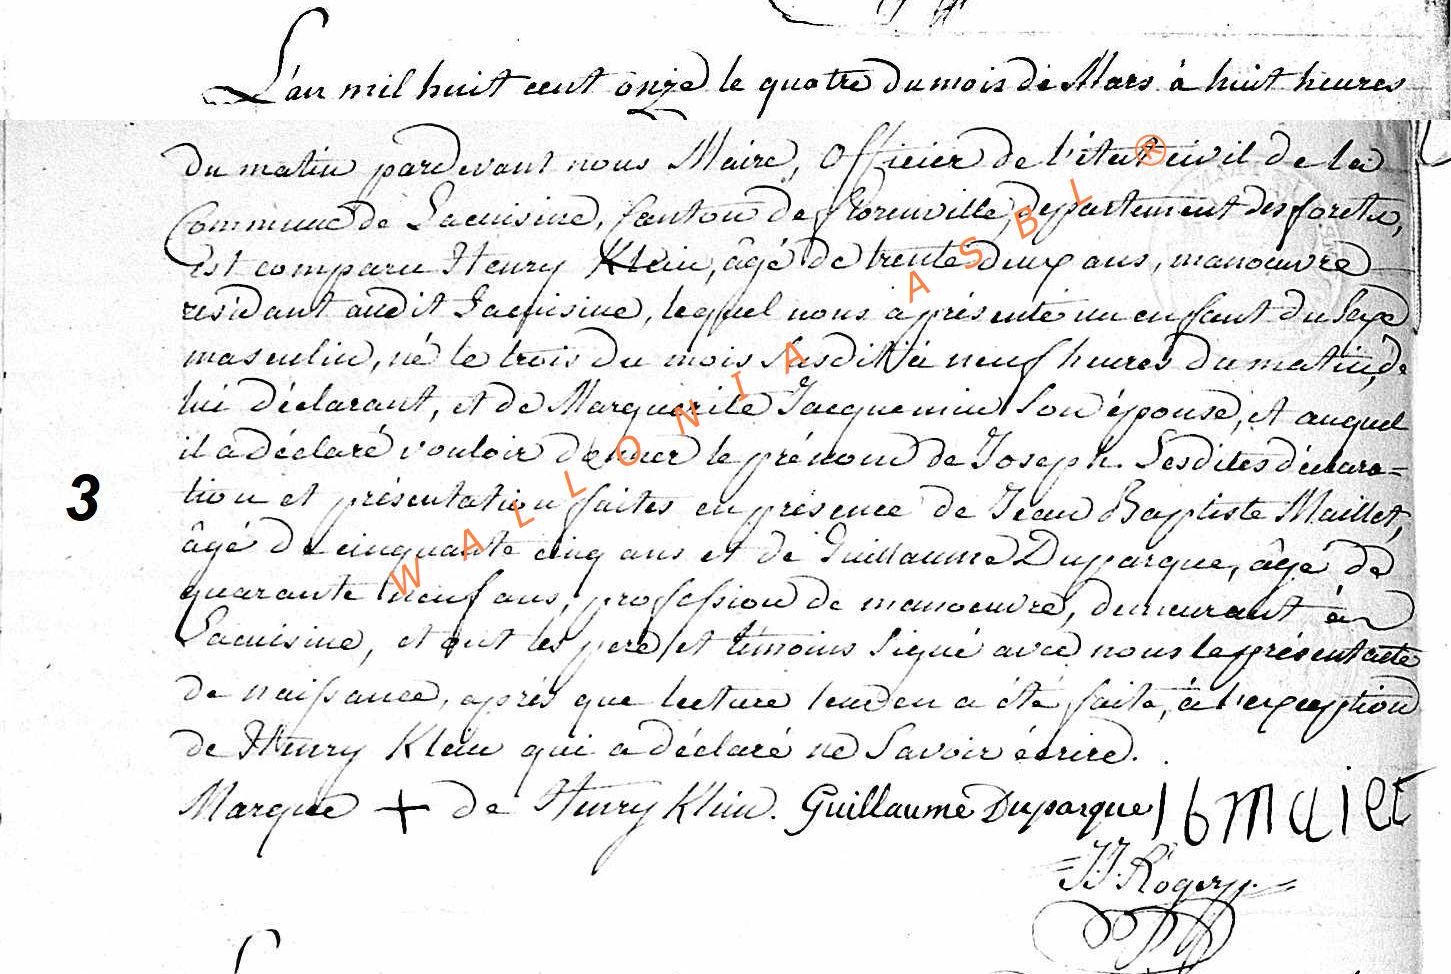 L'an mil huit cent onze le quatre du mois de Mars à huit heures
du matin pardevant nous Maire, Officier de l'état civil de la
Commune de Lacuisine, Canton de florenville, departement des forets,
Est comparu Henry Klein, âgé de trente deux ans, manoeuvre
residant audit Lacuisine, lequel nous a présenté un enfant du Sexe
masculin, né le trois du mois susdit à neuf heures du matin, de
lui déclarant, et de Marguerite Jacquemin Son épouse, et auquel
il a déclaré vouloir donner le prénom de Joseph. Lesdites déclara=
3
tion et présentation faites en présence de Jean Baptiste Maillet,
âgé de cinquante cinq ans et de Guillaume Duparque, âgé de
quarante neuf ans, profession de manoeuvre, demeurant à
Lacuisine, et ont les pere et témoins Signé avec nous le présent acte
de naissance, après que lecture leur en a été faite, à l'exception
de Henry Klein qui a déclaré ne Savoir écrire.
Marque + de Henry Klein. Guillaume Duparque J b maiet
J. J. Rogery
WALLONIA ASBL ®